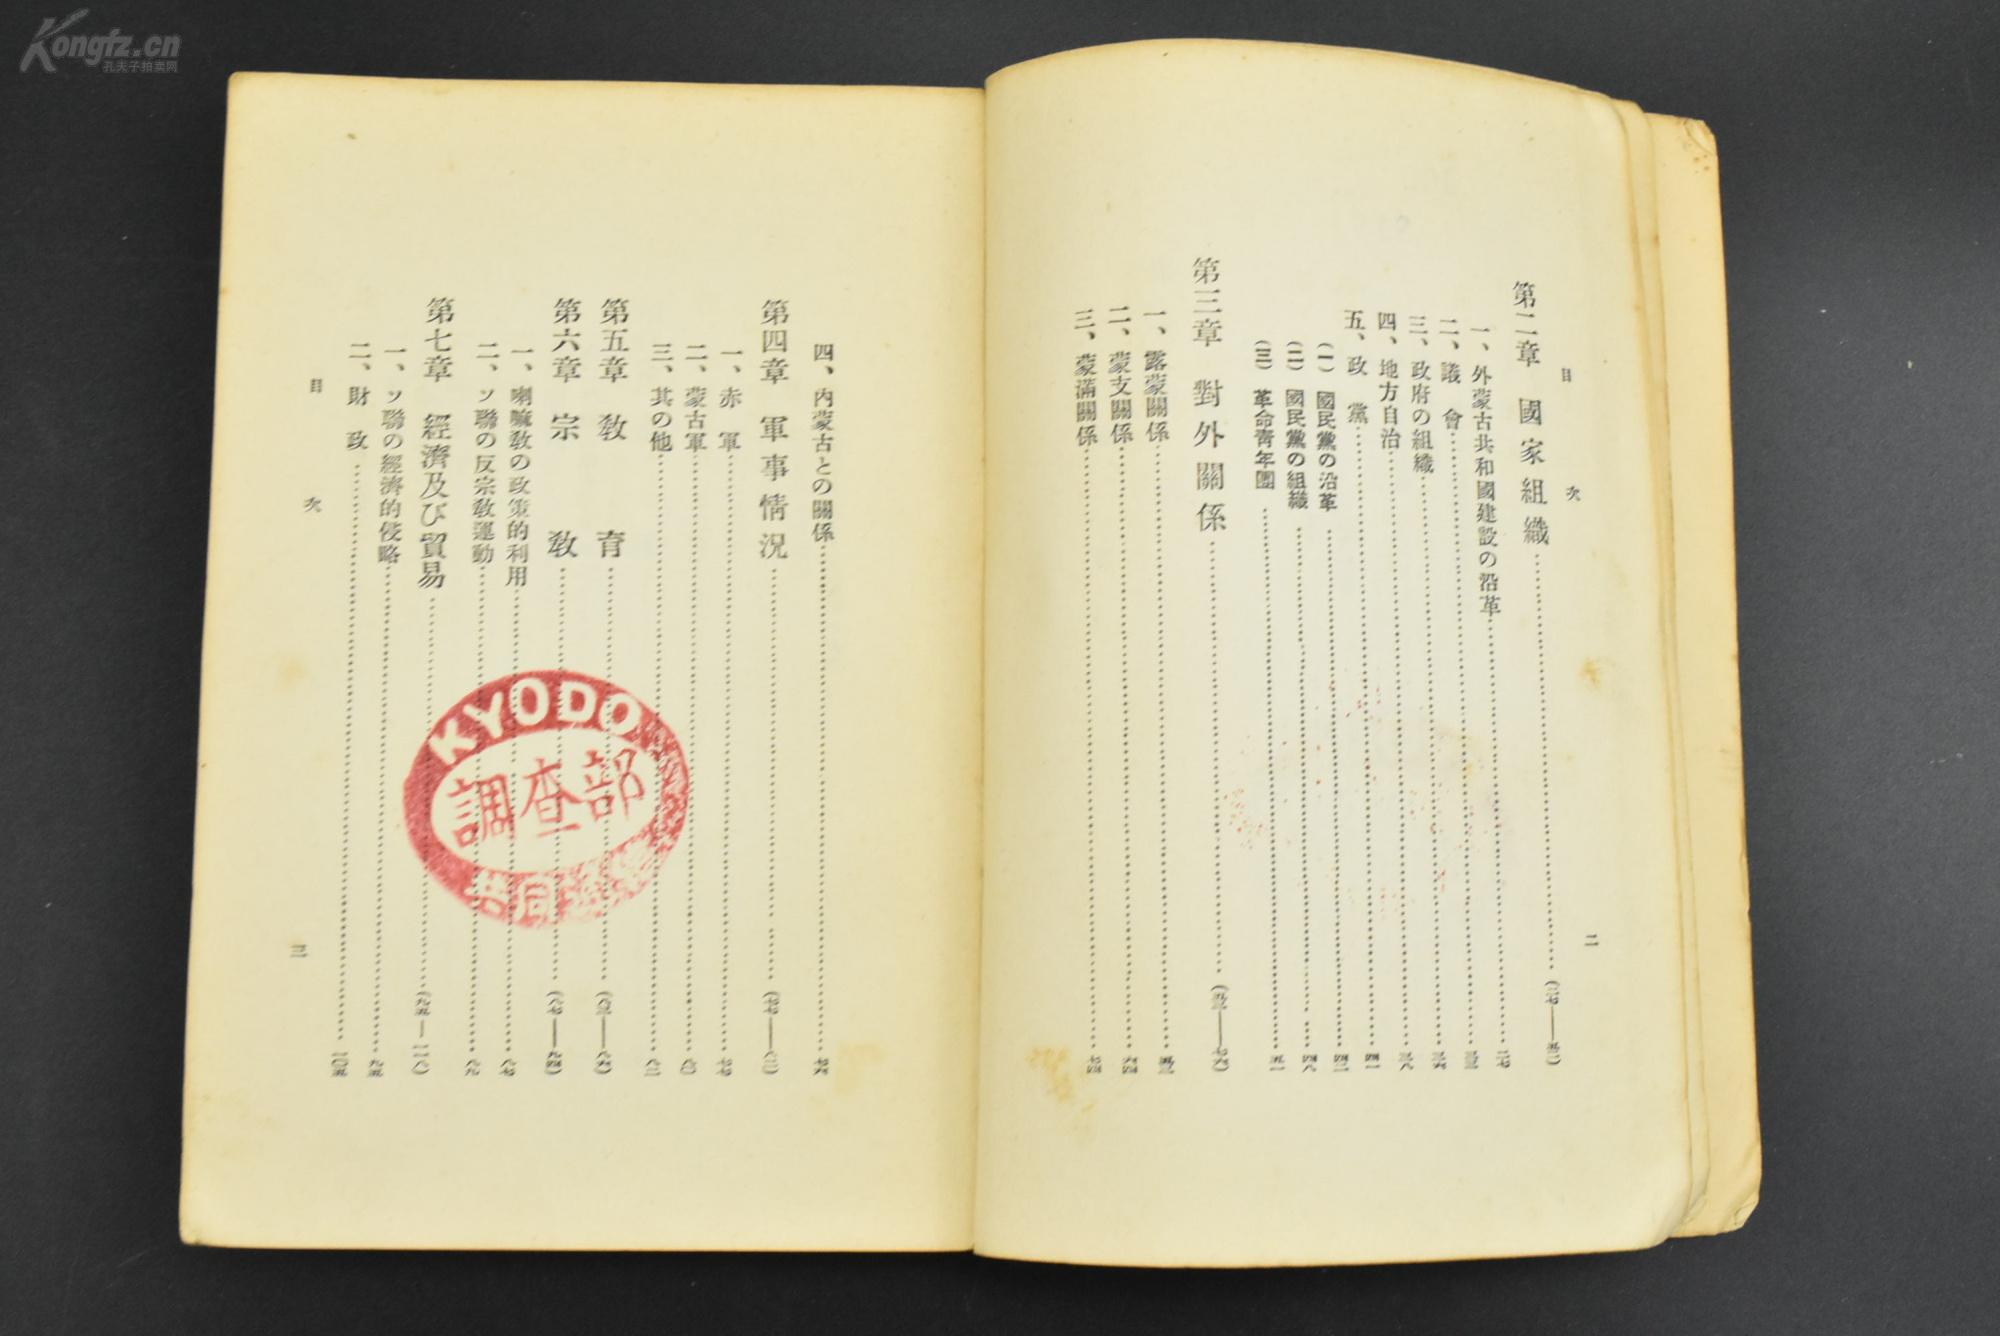 Kongfz.cn
孔夫子拍卖网
目次
二
第二章 國家組織……(二七—五二)
一、外蒙古共和國建設の沿革……二七
二、議會……三三
三、政府の組織……三六
四、地方自治……三八
五、政黨……四一
(一) 國民黨の沿革……四二
(二) 國民黨の組織……四八
(三) 革命青年團……五一
第三章 對外關係……(五三—七六)
一、露蒙關係……五三
二、蒙支關係……六四
三、蒙滿關係……七四
四、內蒙古との關係……七六
第四章 軍事情況……(七七—八二)
一、赤軍……七七
二、蒙古軍……八〇
三、其の他……八二
第五章 敎育……(八三—八六)
第六章 宗敎……(八七—九四)
一、喇嘛敎の政策的利用……八七
二、ソ聯の反宗敎運動……八九
第七章 經濟及び貿易……(九五—一一八)
一、ソ聯の經濟的侵略……九五
二、財政……一〇五
目次
三
KYODO
調査部
共同